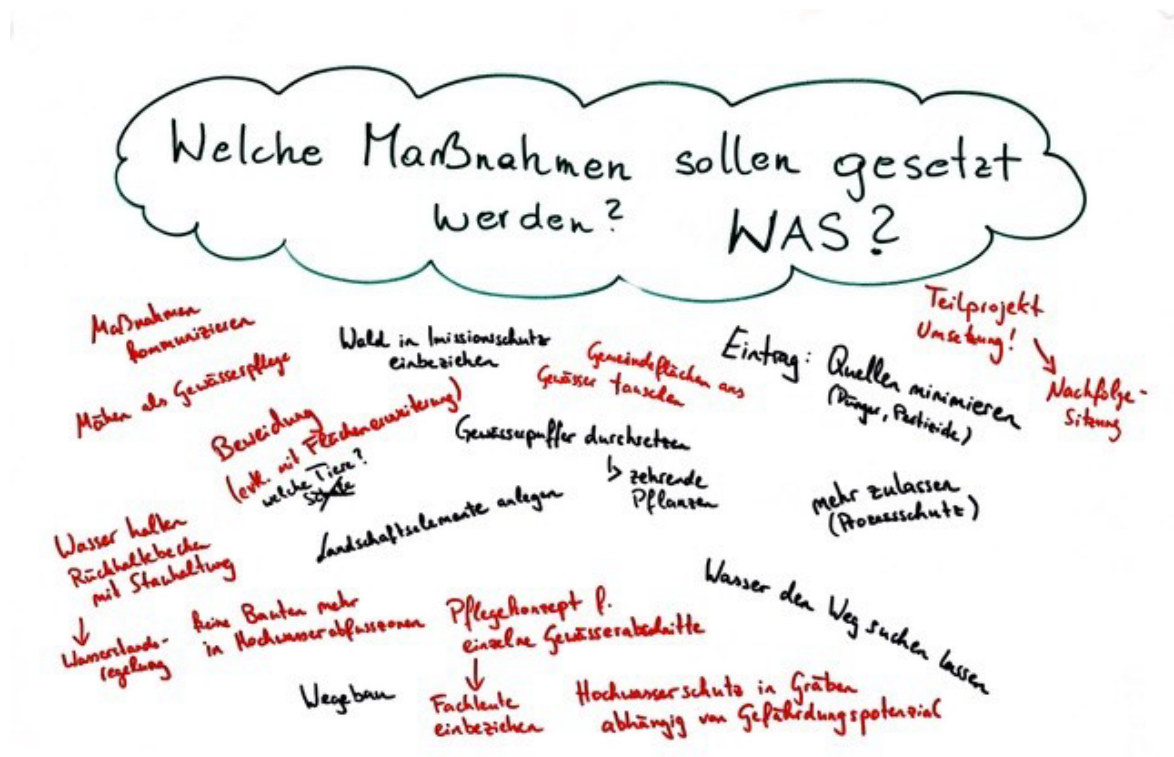 Welche Maßnahmen sollen gesetzt
werden? WAS?
Maßnahmen
kommunizieren
Mähen als Gewässerpflege
Wald in Imissionsschutz
einbeziehen
Gemeindeflächen ans
Gewässer tauschen
Eintrag: Quellen minimieren
(Dünger, Pestizide)
Teilprojekt
Umsetzung!
Nachfolge-
Sitzung
Beweidung
(evtl. mit Flächenerweiterung)
welche Tiere?
Gewässerpuffer durchsetzen
↳ zehrende
Pflanzen
mehr zulassen
(Prozessschutz)
Landschaftselemente anlegen
Wasser halten
Rückhaltebecken
mit Stauhaltung
↓
Wasserstands-
regelung
keine Bauten mehr
in Hochwasserabflusszonen
Pflegekonzept f.
einzelne Gewässerabschnitte
↓
Fachleute
einbeziehen
Wasser den Weg suchen lassen
Wegebau
Hochwasserschutz in Gräben
abhängig von Gefährdungspotenzial